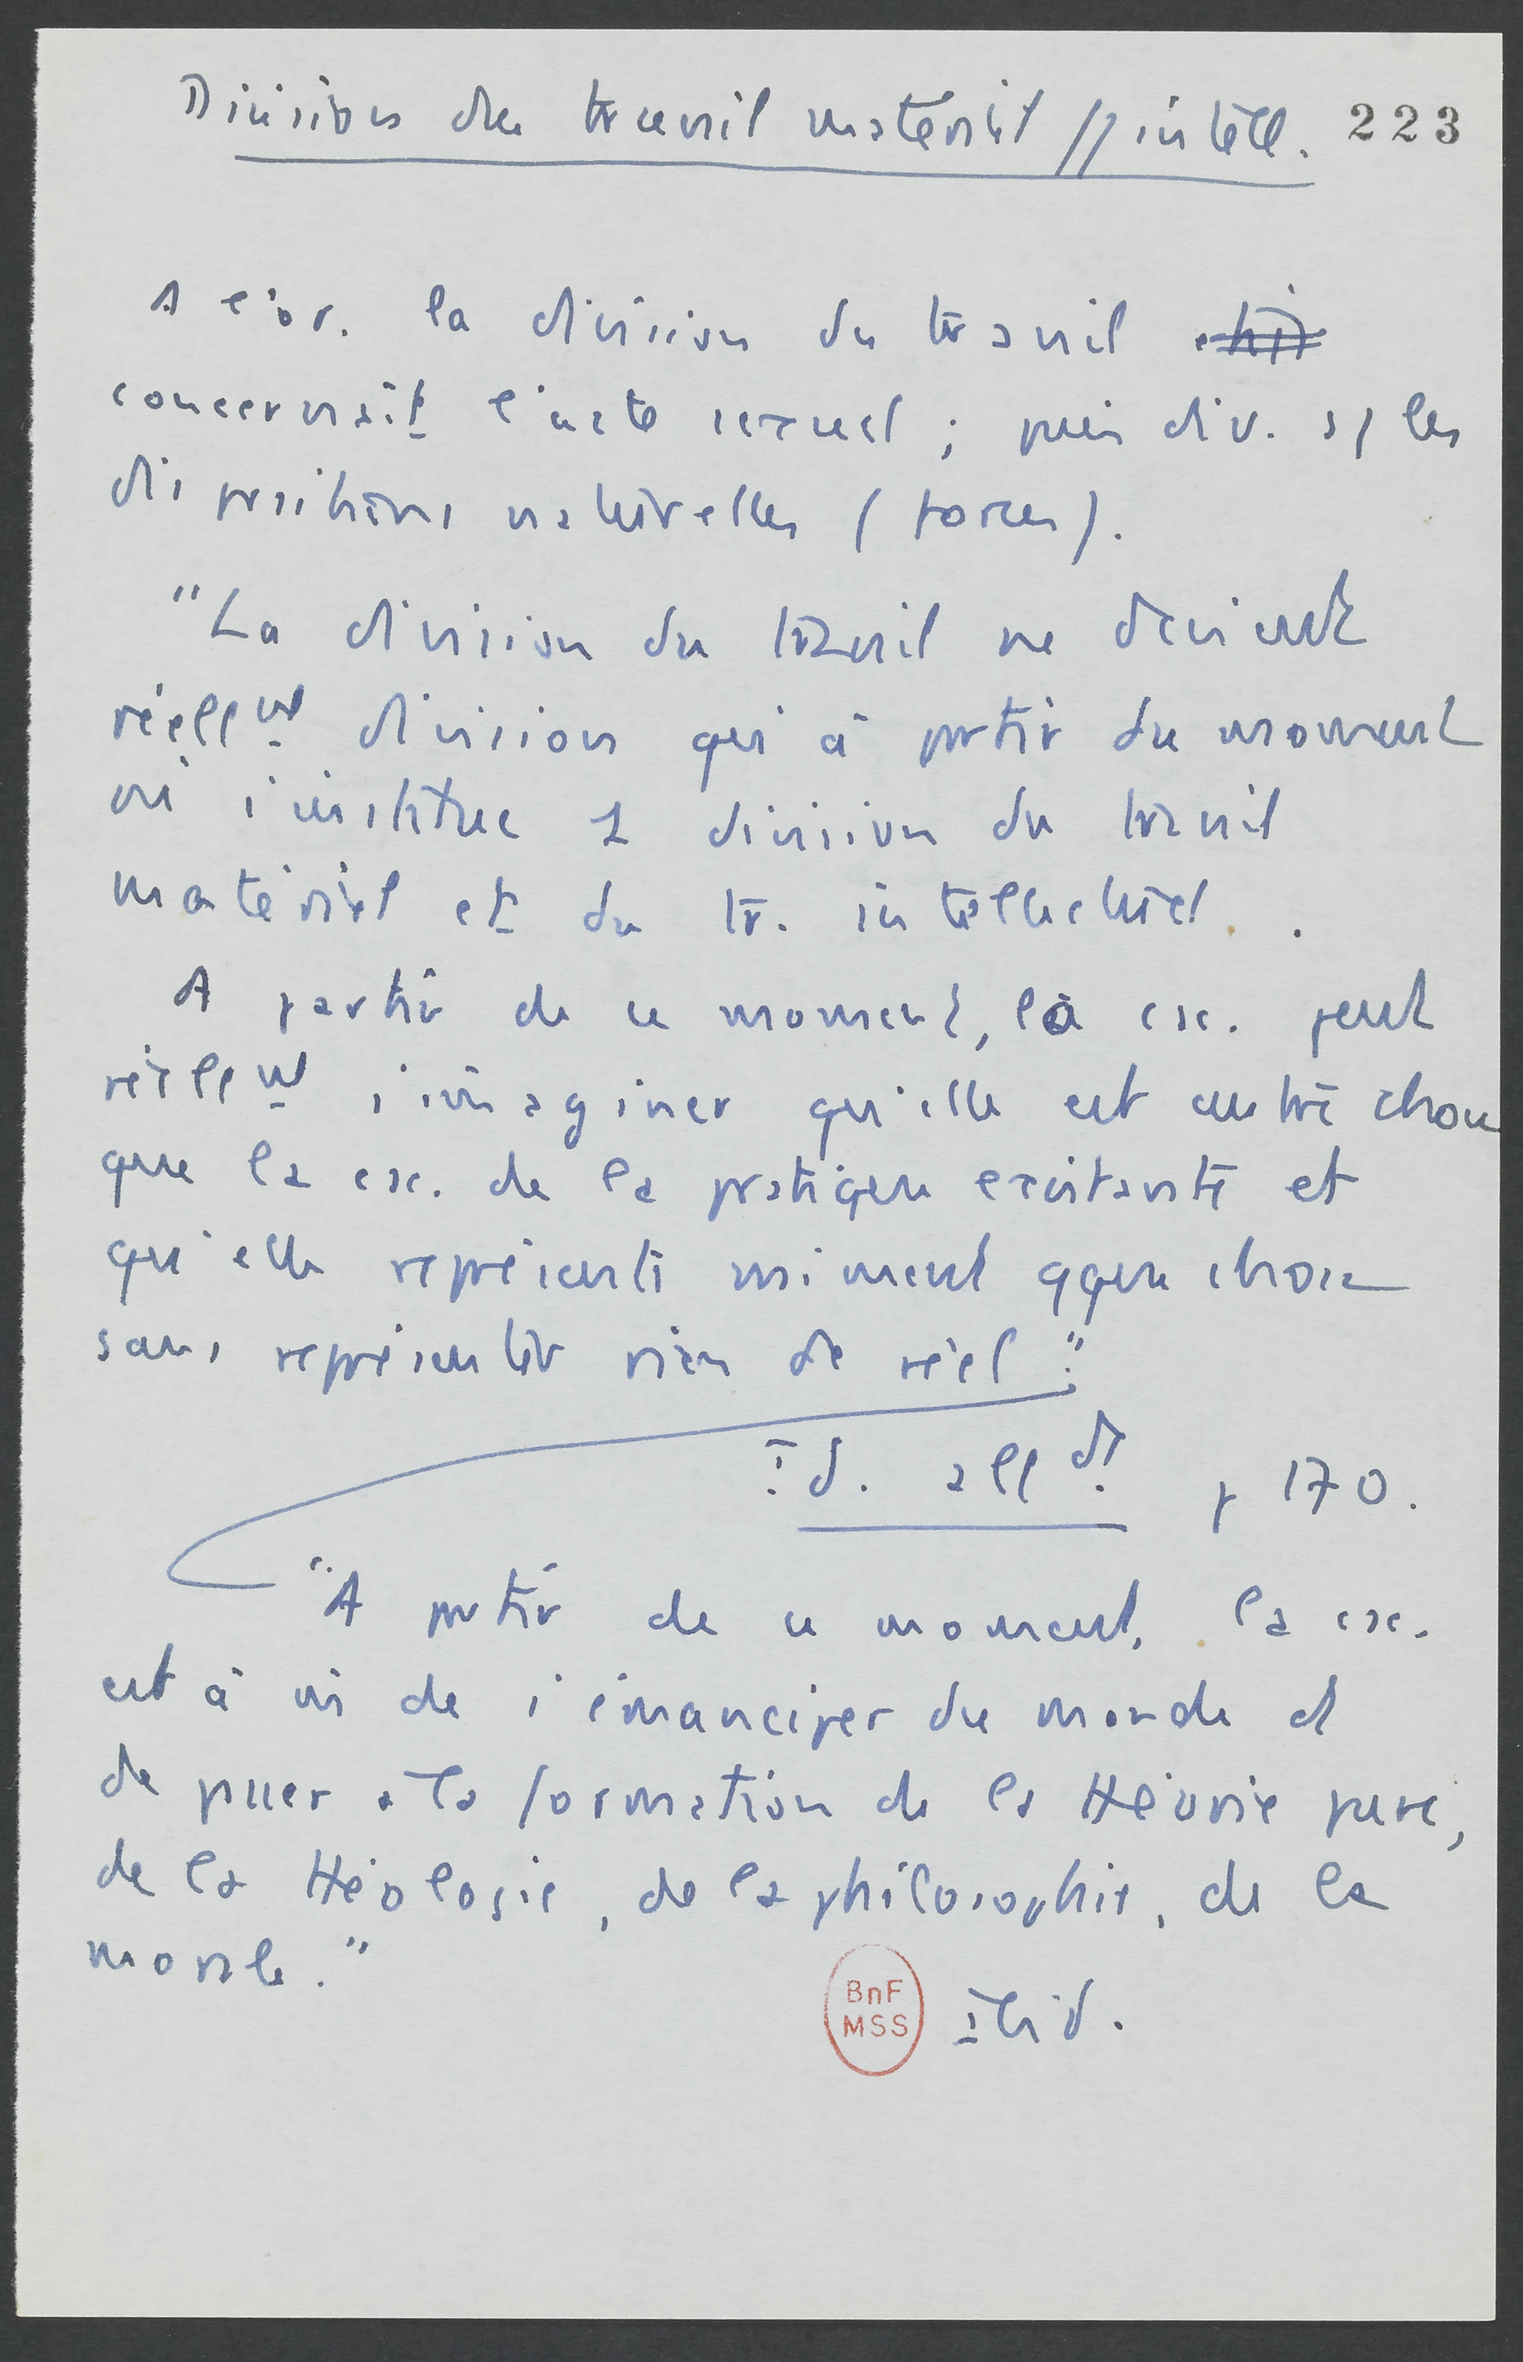 Division du travail matériel // intell. 223
A l'or. la division du travail
concernait l'acte sexuel ; puis div. s/ les
dispositions naturelles (forces).
"La division du travail ne devient
réellmt division qu'à partir du moment
où s'institue 1 division du travail
matériel et du tr. intellectuel .
A partir de ce moment, la csc. peut
réellmt s'imaginer qu'elle est autre chose
que la csc. de la pratique existante et
qu'elle représente vraiment qque chose
sans représenter rien de réel".
Id. alld. p 170.
"A partir de ce moment, la csc.
est à m de s'émanciper du monde et
de passer à la formation de la théorie pure,
de la théologie, de la philosophie, de la
morale."
BnF
MSS
Ibid.